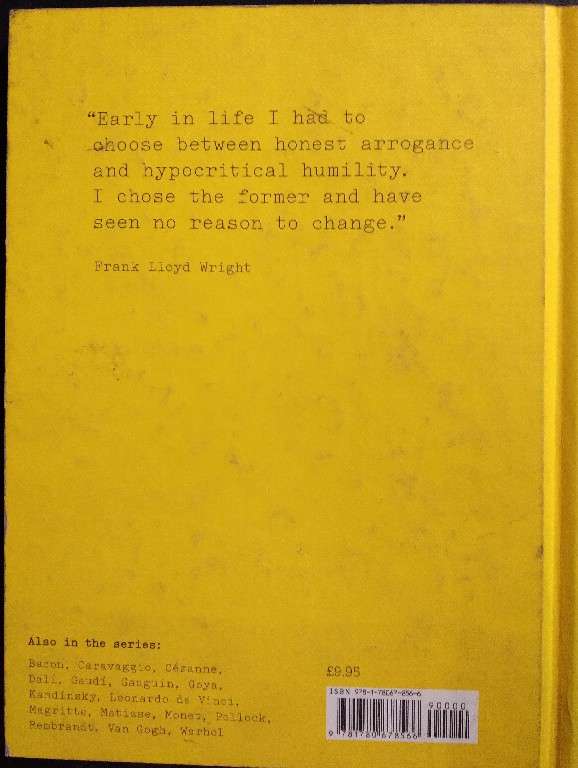 “Early in life I had to
choose between honest arrogance
and hypocritical humility.
I chose the former and have
seen no reason to change.”
Frank Lloyd Wright
Also in the series:
Bacon, Caravaggio, Cézanne,
Dalí, Gaudí, Gauguin, Goya,
Kandinsky, Leonardo da Vinci,
Magritte, Matisse, Monet, Pollock,
Rembrandt, Van Gogh, Warhol
£9.95
ISBN 978-1-78067-856-6
90000
9 781780 678566